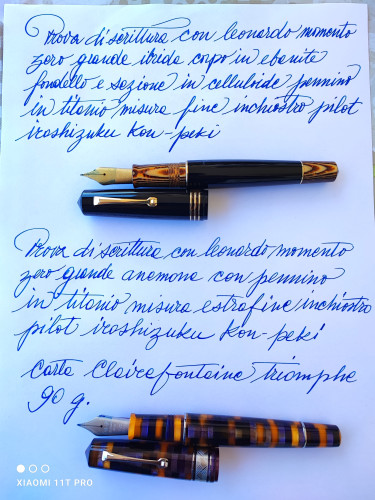 Prova di scrittura con leonardo momento
zero grande ibrida corpo in ebanite
fondello e sezione in celluloide pennino
in titanio misura fine inchiostro pilot
iroshizuku Kon-peki
Prova di scrittura con leonardo momento
zero grande anemona con pennino
in titanio misura extrafine inchiostro
pilot iroshizuku Kon-peki
carta Clairefontaine triomphe
90 g.
XIAOMI 11T PRO